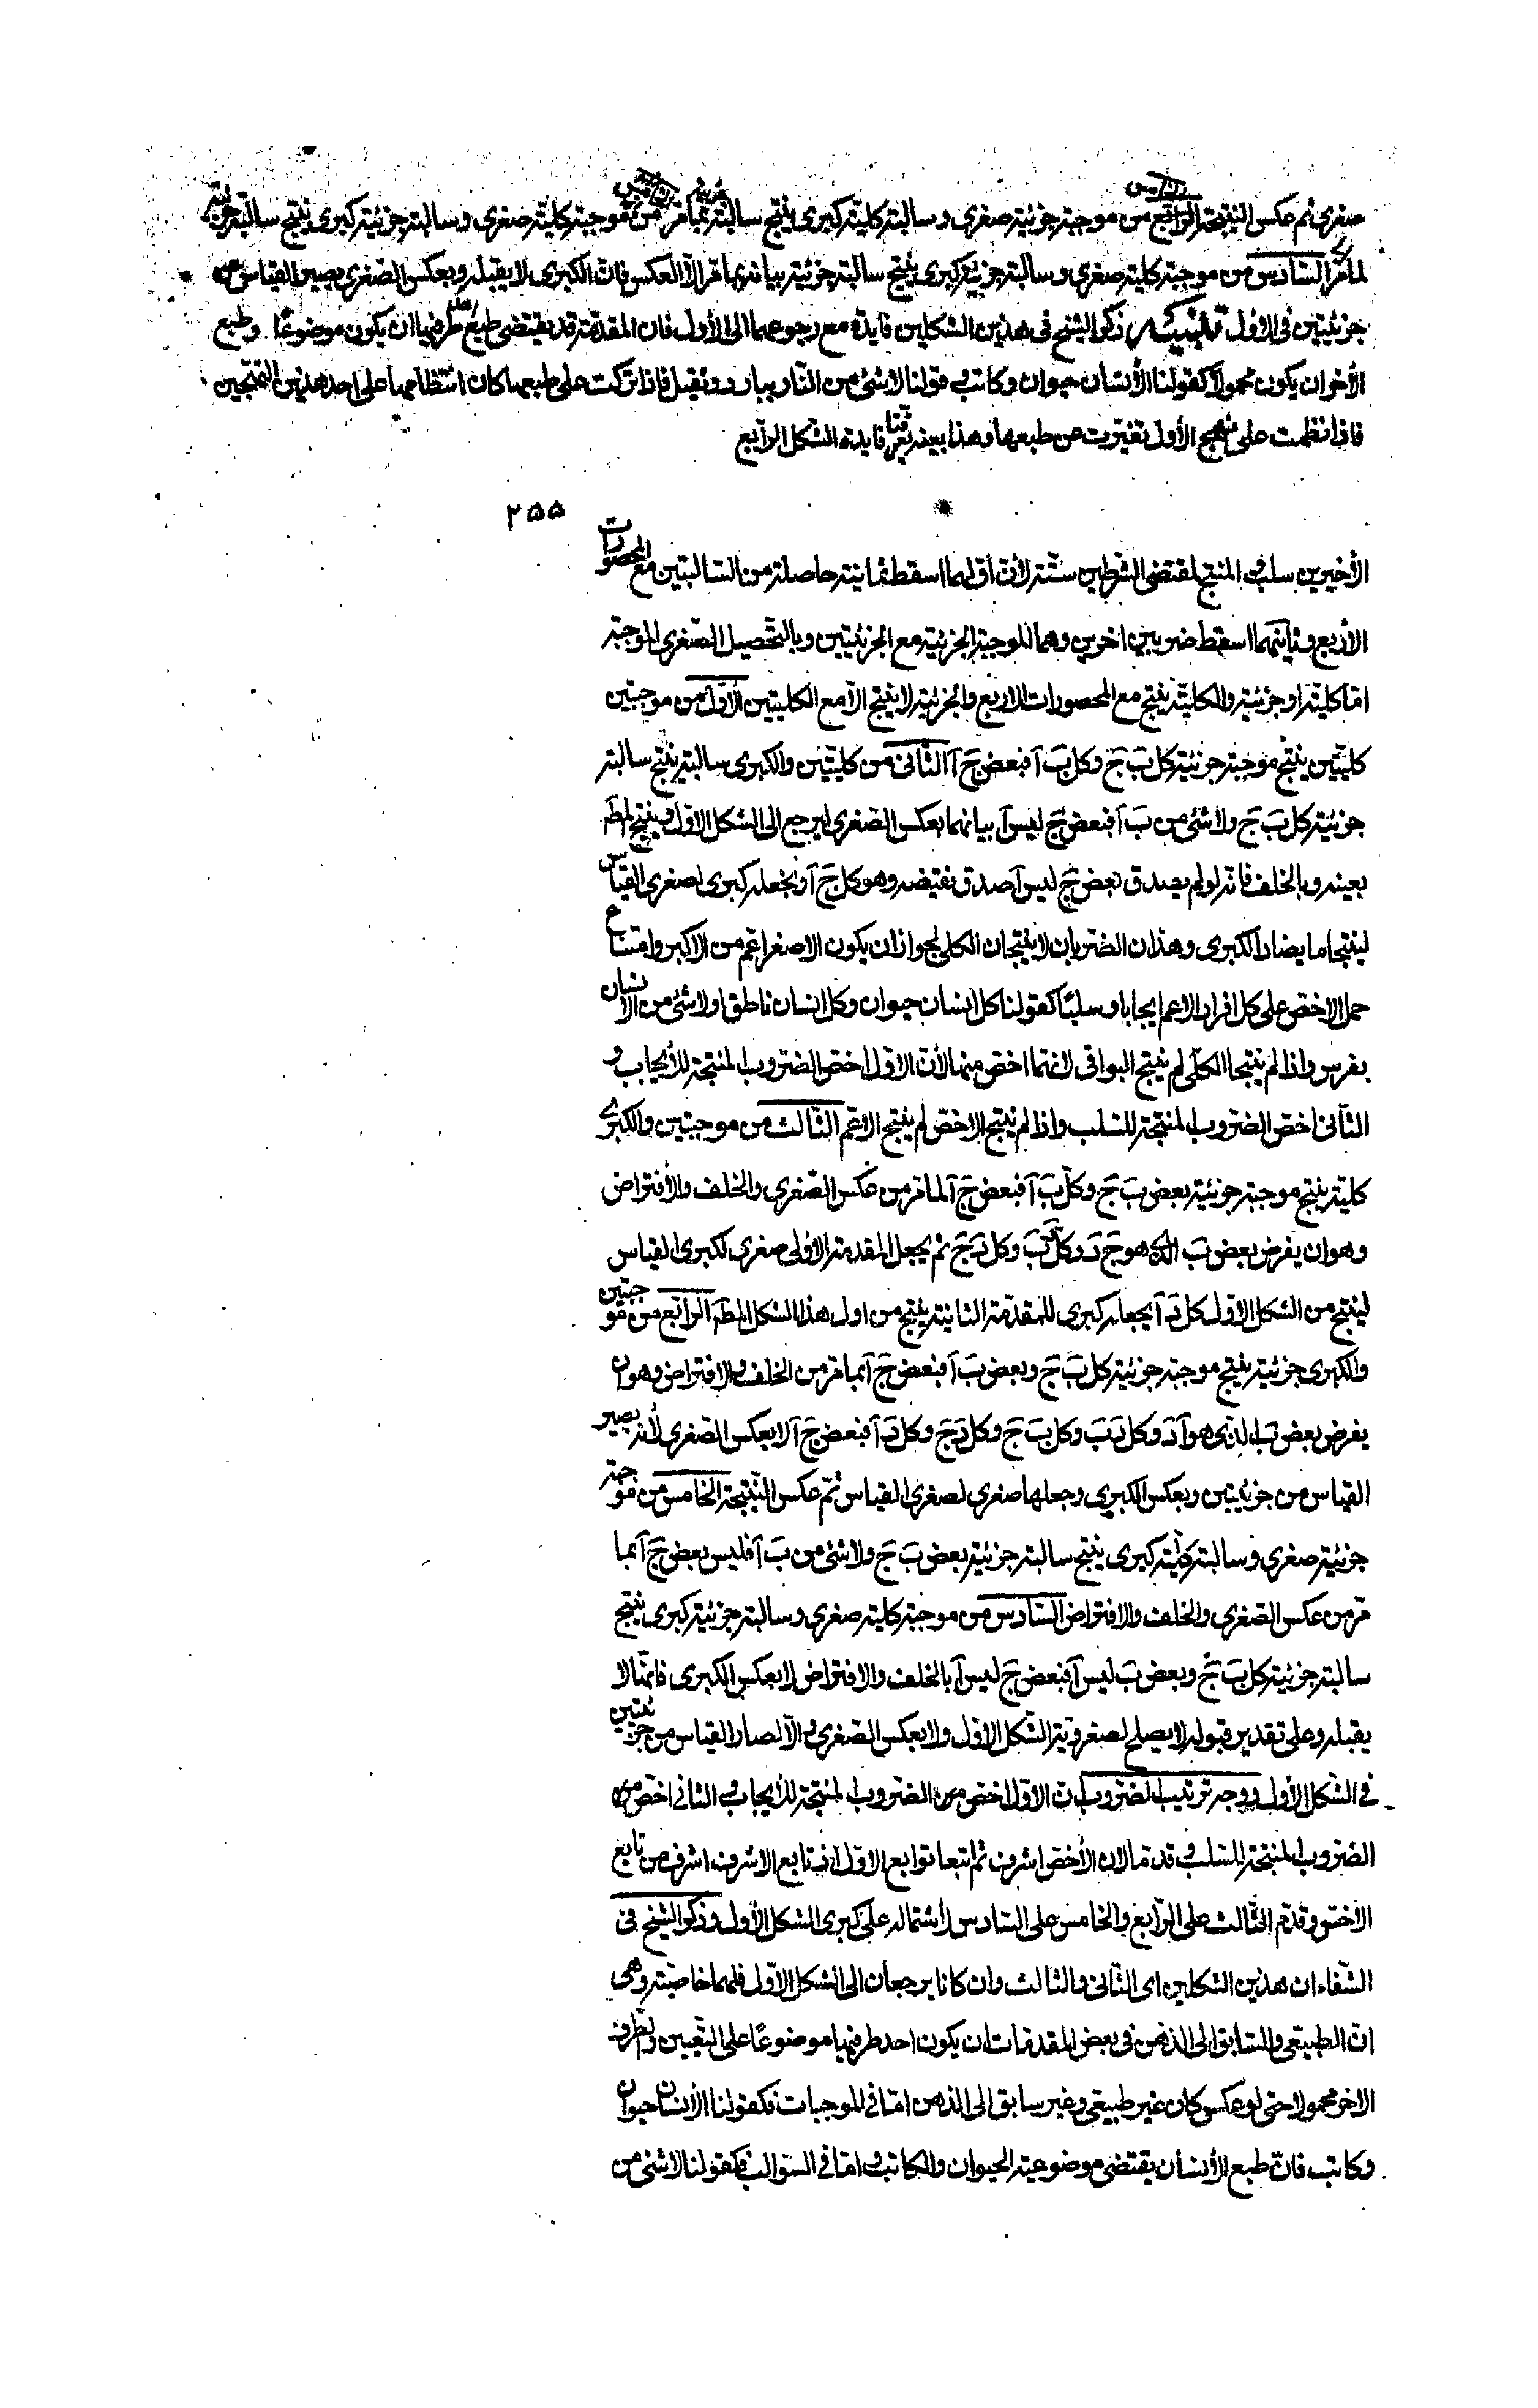 صغرى ثم عكس النتيجة الرابع من موجبة جزئية صغرى وسالبة كلية كبرى ينتج سالبة بما مر الخامس من موجبة كلية صغرى وسالبة جزئية كبرى ينتج سالبة جزئية
لما مر السادس من موجبة كلية صغرى وسالبة جزئية كبرى ينتج سالبة جزئية بيانه بما مر الا العكس فان الكبرى لا يقبله وبعكس الصغرى يصير القياس من
جزئيتين فى الاول تنبيه ذكر الشيخ فى هذين الشكلين فايدة مع رجوعهما الى الأول فان المقدمة قد يقتضى طبع احد طرفيها ان يكون موضوعًا وطبع
الأخر ان يكون محمولا كقولنا الأنسان حيوان وكاتب و قولنا لا شئ من النار ببارد وثقيل فاذا تركت على طبعها كان انتظامها على احد هذين المنتجين
فاذا نظمت على نهج الأول تغيرت عن طبعها وهذا بعينه فايدة الشكل الرابع
٢٥٥
الأخيرين سلب و المنتج لمقتضى الشرطين ستة لأن اولهما اسقط ثمانية حاصلة من السالبتين مع المحصورات
الأربع وثانيهما اسقط ضربين اخرين وهما الموجبة الجزئية مع الجزئيتين وبالتحصيل الصغرى الموجبة
اما كلية او جزئية والكلية ينتج مع المحصورات الاربع والجزئية لا ينتج الا مع الكليتين الأول من موجبتين
كليتين ينتج موجبة جزئية كل بَ جَ وكل بَ آ فبعض جَ آ الثانى من كليتين والكبرى سالبة ينتج سالبة
جزئية كل بَ جَ ولا شئ من بَ آ فبعض جَ ليس آ بيانهما بعكس الصغرى ليرجع الى الشكل الاول وينتج المط
بعينه وبالخلف فانه لو لم يصدق بعض جَ ليس آ صدق نقيضه وهو كل جَ آ ونجعله كبرى لصغرى القياس
لينتجا ما يضاد الكبرى وهذان الضربان لا ينتجان الكلى لجواز ان يكون الاصغر اعم من الاكبر وامتناع
حمل الاخص على كل افراد الاعم ايجابا وسلبًا كقولنا كل انسان حيوان وكل انسان ناطق او لا شئ من الانسان
بفرس واذا لم ينتجا الكلى لم ينتج البواقى لانهما اخص منها لأن الاول اخص الضروب المنتجة للأيجاب و
الثانى اخص الضروب المنتجة للسلب واذا لم ينتج الاخص لم ينتج الاعم الثالث من موجبتين والكبرى
كلية ينتج موجبة جزئية بعض بَ جَ وكل بَ آ فبعض جَ آ لما مر من عكس الصغرى والخلف والأفتراض
وهو ان يفرض بعض بَ الذى هو جَ دَ وكل دَ بَ وكل دَ جَ ثم يجعل المقدمة الاولى صغرى لكبرى القياس
لينتج من الشكل الاول كل دَ آ يجعله كبرى للمقدمة الثانية ينتج من اول هذا الشكل المط الرابع من موجبتين
والكبرى جزئية ينتج موجبة جزئية كل بَ جَ وبعض بَ آ فبعض جَ آ بما مر من الخلف والافتراض وهو ان
يفرض بعض بَ الذى هو آ دَ وكل دَ بَ وكل بَ جَ وكل دَ جَ وكل دَ آ فبعض جَ آ لا بعكس الصغرى لأنه يصير
القياس من جزئيتين وبعكس الكبرى وجعلها صغرى لصغرى القياس ثم عكس النتيجة الخامس من موجبة
جزئية صغرى وسالبة كلية كبرى ينتج سالبة جزئية بعض بَ جَ ولا شئ من بَ آ فليس بعض جَ آ بما
مر من عكس الصغرى والخلف والافتراض السادس من موجبة كلية صغرى وسالبة جزئية كبرى ينتج
سالبة جزئية كل بَ جَ وبعض بَ ليس آ فبعض جَ ليس آ بالخلف والافتراض لا بعكس الكبرى فانها لا
يقبله وعلى تقدير قبوله لا يصلح لصغروية الشكل الاول ولا بعكس الصغرى والا لصار القياس من جزئيتين
فى الشكل الأول ووجه ترتيب الضروب ان الاول اخص من الضروب المنتجة للأيجاب و الثانى اخص من
الضروب المنتجة للسلب و قدما لان الأخص اشرف ثم اتبعا توابع الاول اذ تابع الاشرف اشرف من تابع
الاخس وقدم الثالث على الرابع والخامس على السادس لأشتماله على كبرى الشكل الأول وذكر الشيخ فى
الشفاء ان هذين الشكلين اى الثانى والثالث وان كانا يرجعان الى الشكل الاول فلهما خاصية وهى
ان الطبيعى والسابق الى الذهن فى بعض المقدمات ان يكون احد طرفيها موضوعًا على التعيين والطرف
الاخر محمولا حتى لو عكس كان غير طبيعى وغير سابق الى الذهن اما فى الموجبات فكقولنا الأنسان حيوان
وكاتب فان طبع الأنسان يقتضى موضوعية الحيوان والكاتب و اما فى السوالب فكقولنا لا شئ من